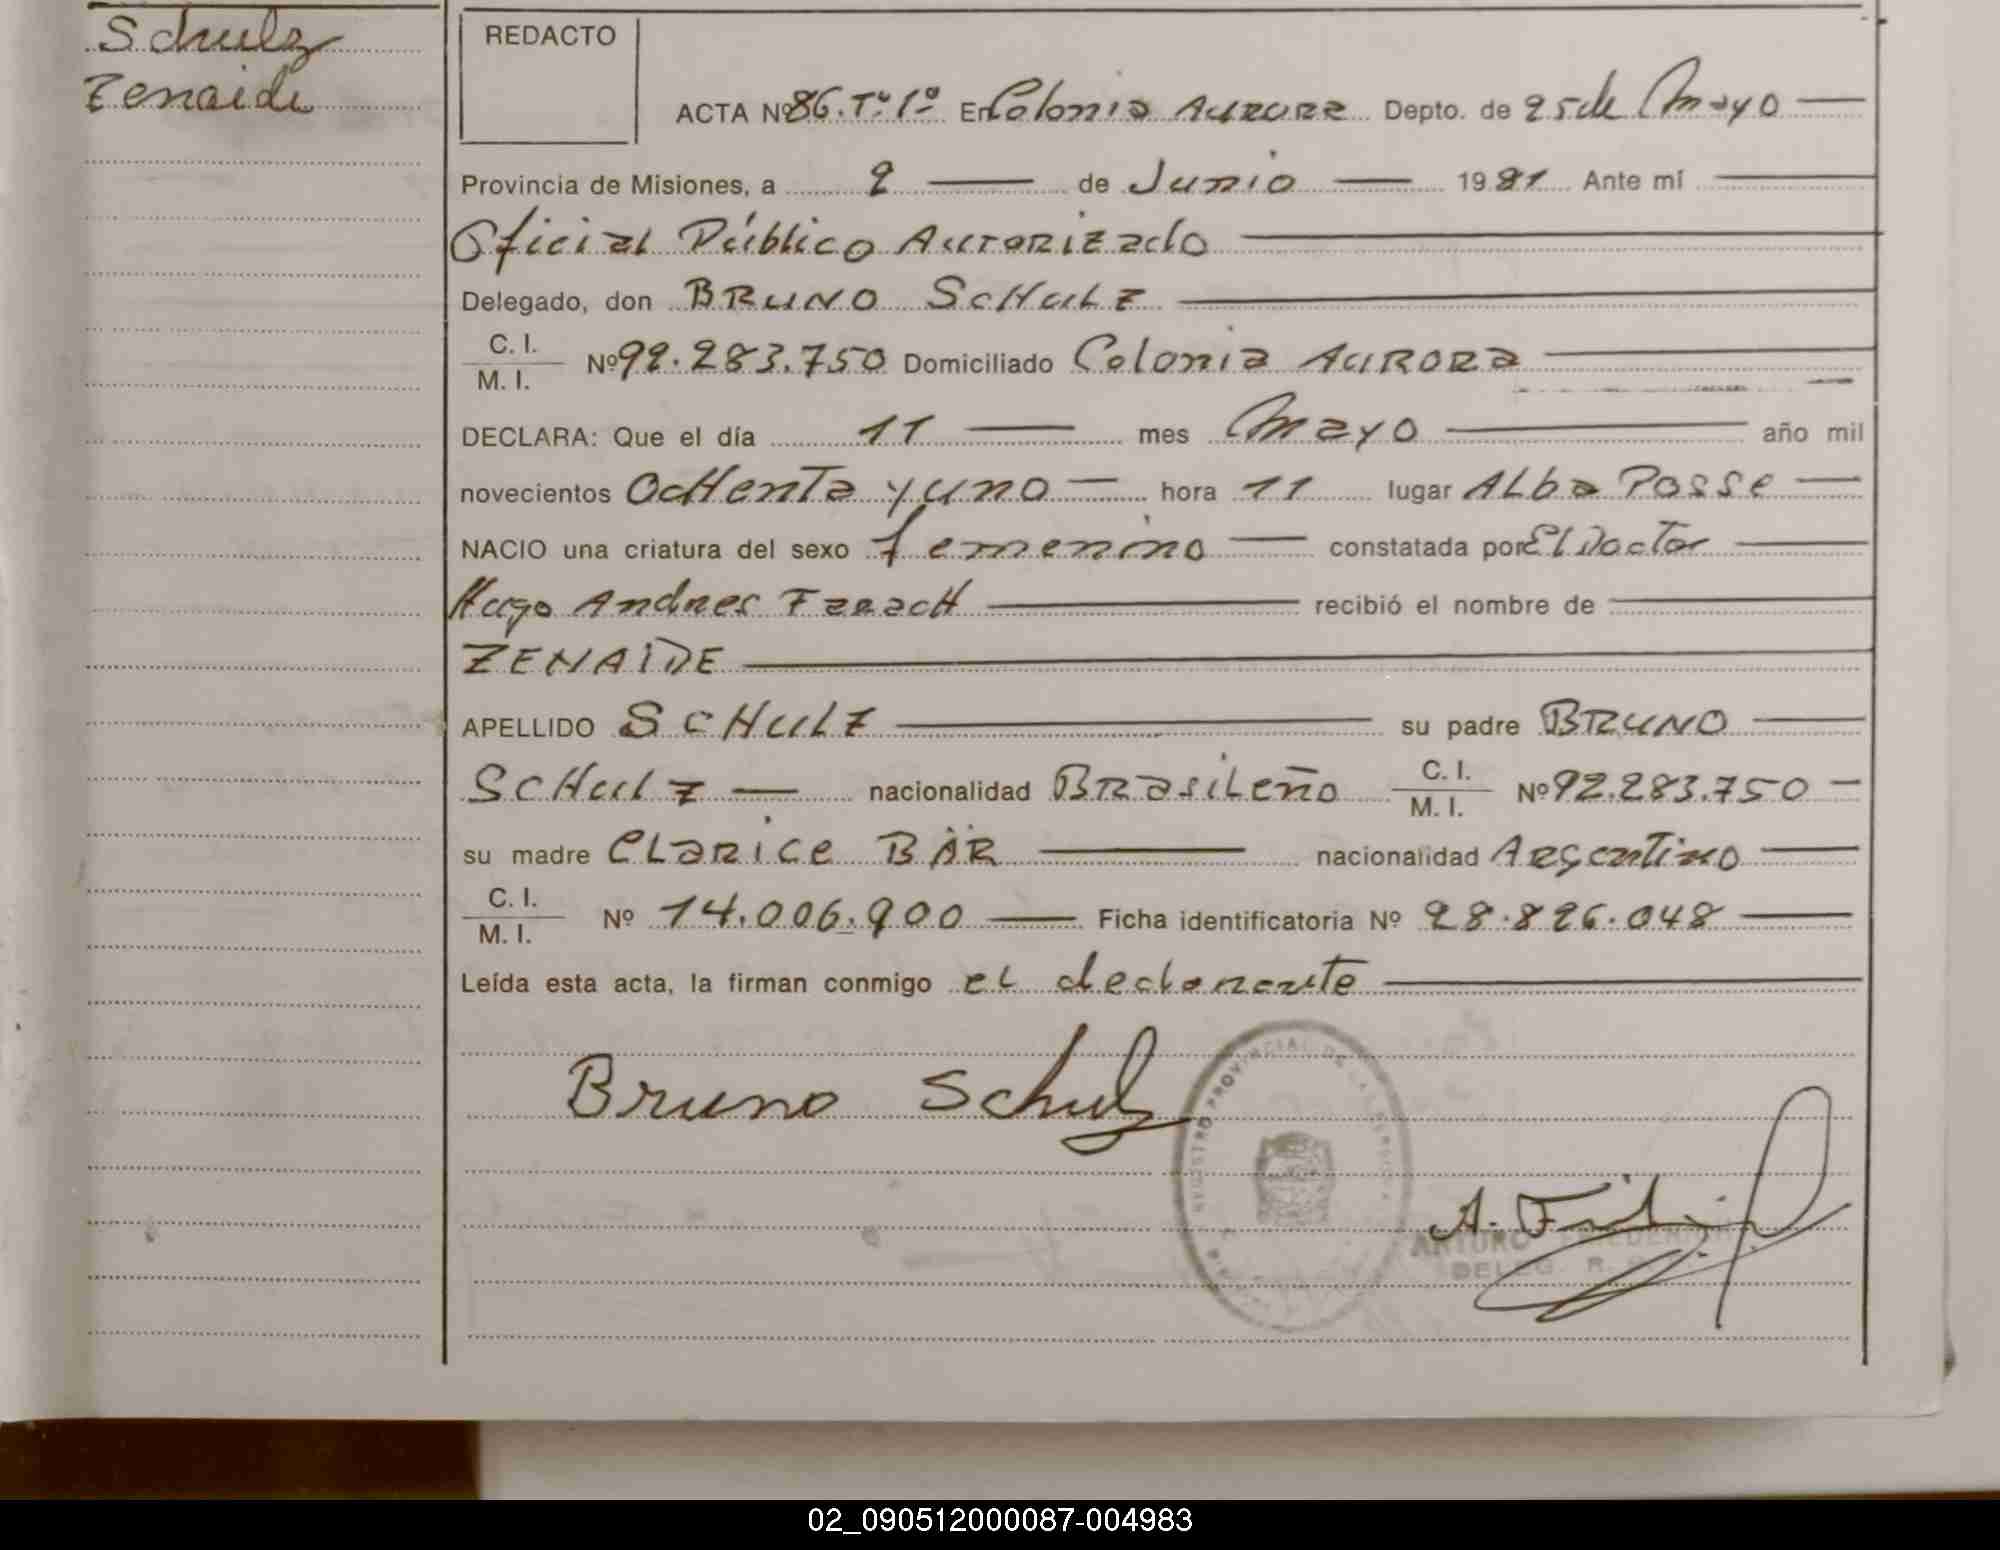 Schulz
Zenaide
REDACTO
ACTA Nº 86.Tº.1º En Colonia Aurora Depto. de 25 de Mayo
Provincia de Misiones, a 2 de Junio 1981 Ante mí
Oficial Público Autorizado
Delegado, don BRUNO SCHULZ
C. I.
M. I. Nº 92.283.750 Domiciliado Colonia AURORA
DECLARA: Que el día 11 mes Mayo año mil
novecientos OcHenTa y uno hora 11 lugar ALba Posse
NACIO una criatura del sexo femenino constatada por El Doctor
Hugo Andres FaracH recibió el nombre de
ZENAIDE
APELLIDO SCHULZ su padre BRUNO
SCHULZ nacionalidad BRasiLeño C. I.
M. I. Nº 92.283.750
su madre CLaRice BÄR nacionalidad ARgentino
C. I.
M. I. Nº 14.006.900 Ficha identificatoria Nº 28.826.048
Leída esta acta, la firman conmigo eL declarante
Bruno Schulz
REGISTRO PROVINCIAL DE LAS PERSONAS
ARTURO
DELEG. R.
02_090512000087-004983